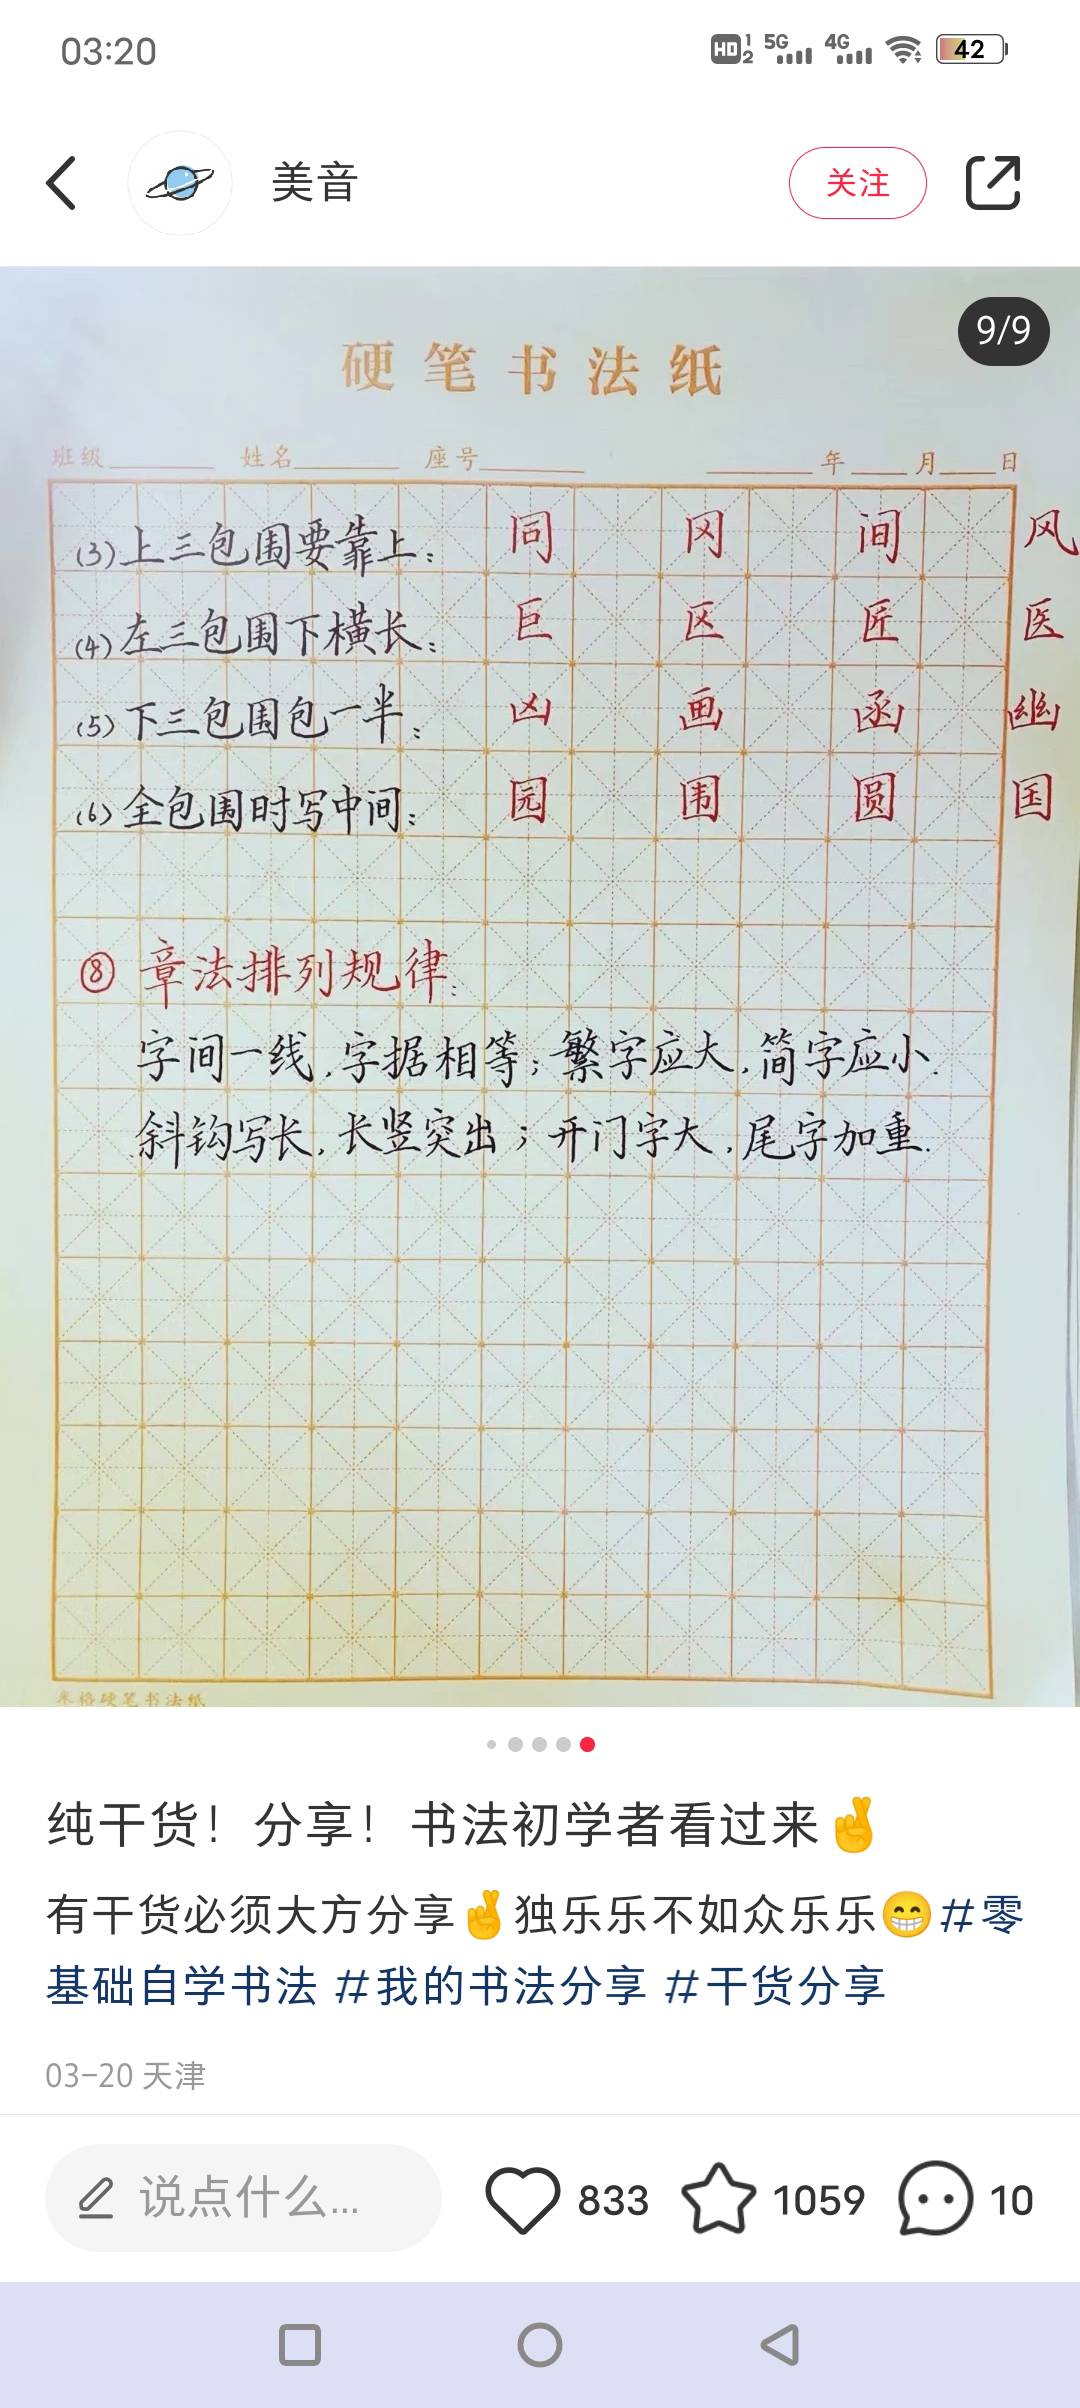 03:20
HD 1 2 5G 4G 42
美音
关注
9/9
硬笔书法纸
班级 姓名 座号 年 月 日
(3)上三包围要靠上: 同 冈 间 风
(4)左三包围下横长: 巨 区 匠 医
(5)下三包围包一半: 凶 画 函 幽
(6)全包围时写中间: 园 围 圆 国
⑧ 章法排列规律:
字间一线,字据相等;繁字应大,简字应小.
斜钩写长,长竖突出;开门字大,尾字加重.
米格硬笔书法纸
纯干货!分享!书法初学者看过来🤞
有干货必须大方分享🤞独乐乐不如众乐乐😁#零
基础自学书法 #我的书法分享 #干货分享
03-20 天津
说点什么...
833
1059
10